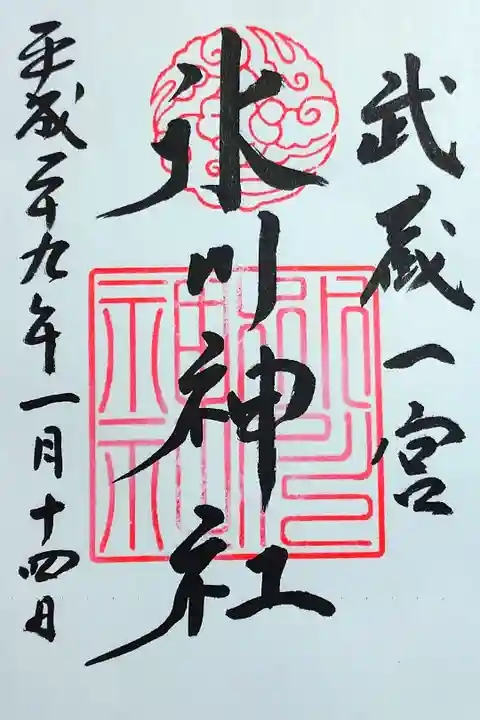 武蔵一宮
氷川神社
平成二十九年一月十四日